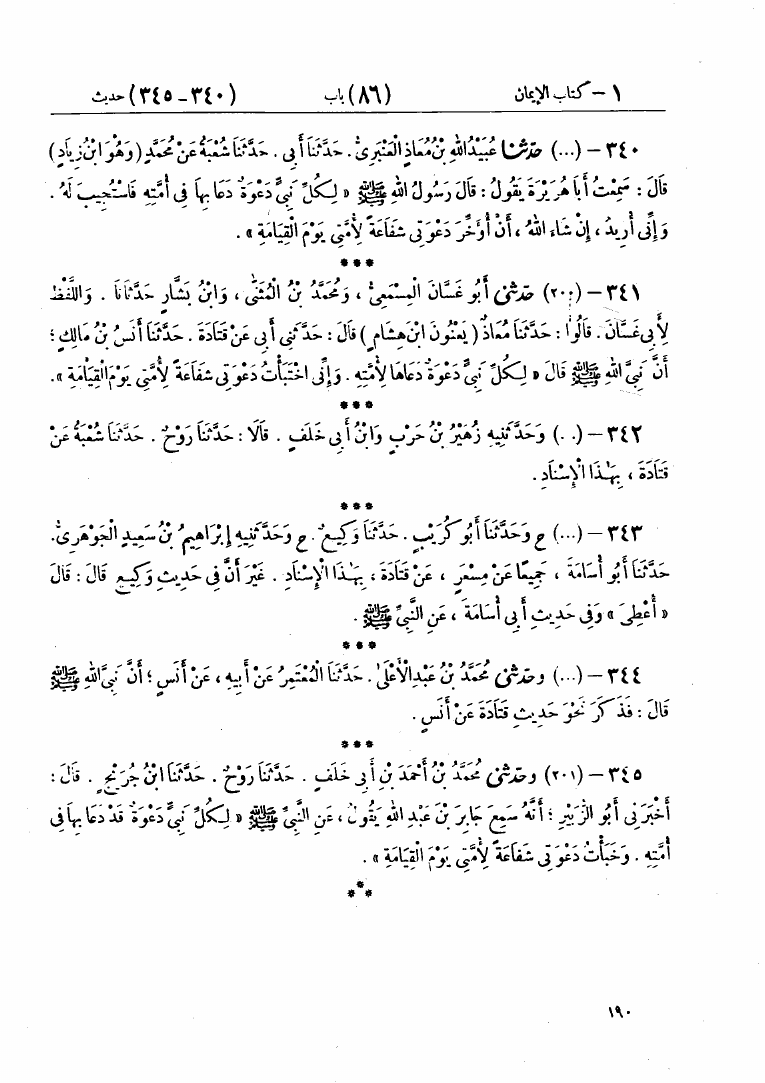 ١ – كتاب الإيمان (٨٦) باب (٣٤٠-٣٤٥) حديث
٣٤٠ – (...) حَدَّثَنَا عُبَيْدُ اللهِ بْنُ مُعَاذٍ الْعَنْبَرِىُّ. حَدَّثَنَا أَبِى. حَدَّثَنَا شُعْبَةُ عَنْ مُحَمَّدٍ (وَهُوَ ابْنُ زِيَادٍ)
قَالَ : سَمِعْتُ أَبَا هُرَيْرَةَ يَقُولُ : قَالَ رَسُولُ اللهِ ﷺ « لِكُلِّ نَبِىٍّ دَعْوَةٌ دَعَا بِهَا فِى أُمَّتِهِ فَاسْتُجِيبَ لَهُ .
وَإِنِّى أُرِيدُ ، إِنْ شَاءَ اللهُ ، أَنْ أُؤَخِّرَ دَعْوَتِى شَفَاعَةً لِأُمَّتِى يَوْمَ الْقِيَامَةِ » .
***
٣٤١ – (٢٠٠) حَدَّثَنِى أَبُو غَسَّانَ الْمِسْمَعِىُّ ، وَمُحَمَّدُ بْنُ الْمُثَنَّى ، وَابْنُ بَشَّارٍ حَدَّثَانَا . وَاللَّفْظُ
لِأَبِى غَسَّانَ . قَالُوا : حَدَّثَنَا مُعَاذٌ ( يَعْنُونَ ابْنَ هِشَامٍ ) قَالَ : حَدَّثَنِى أَبِى عَنْ قَتَادَةَ . حَدَّثَنَا أَنَسُ بْنُ مَالِكٍ ؛
أَنَّ نَبِىَّ اللهِ ﷺ قَالَ « لِكُلِّ نَبِىٍّ دَعْوَةٌ دَعَاهَا لِأُمَّتِهِ . وَإِنِّى اخْتَبَأْتُ دَعْوَتِى شَفَاعَةً لِأُمَّتِى يَوْمَ الْقِيَامَةِ » .
***
٣٤٢ – (. .) وَحَدَّثَنِيهِ زُهَيْرُ بْنُ حَرْبٍ وَابْنُ أَبِى خَلَفٍ . قَالَا : حَدَّثَنَا رَوْحٌ . حَدَّثَنَا شُعْبَةُ عَنْ
قَتَادَةَ ، بِهَٰذَا الْإِسْنَادِ .
***
٣٤٣ – (...) ح وَحَدَّثَنَا أَبُو كُرَيْبٍ . حَدَّثَنَا وَكِيعٌ . ح وَحَدَّثَنِيهِ إِبْرَاهِيمُ بْنُ سَعِيدٍ الْجَوْهَرِىُّ .
حَدَّثَنَا أَبُو أُسَامَةَ ، جَمِيعًا عَنْ مِسْعَرٍ ، عَنْ قَتَادَةَ ، بِهَٰذَا الْإِسْنَادِ . غَيْرَ أَنَّ فِى حَدِيثِ وَكِيعٍ قَالَ : قَالَ
« أُعْطِىَ » وَفِى حَدِيثِ أَبِى أُسَامَةَ ، عَنِ النَّبِىِّ ﷺ .
***
٣٤٤ – (...) وَحَدَّثَنِى مُحَمَّدُ بْنُ عَبْدِ الْأَعْلَىٰ . حَدَّثَنَا الْمُعْتَمِرُ عَنْ أَبِيهِ ، عَنْ أَنَسٍ ؛ أَنَّ نَبِىَّ اللهِ ﷺ
قَالَ : فَذَكَرَ نَحْوَ حَدِيثِ قَتَادَةَ عَنْ أَنَسٍ .
***
٣٤٥ – (٢٠١) وَحَدَّثَنِى مُحَمَّدُ بْنُ أَحْمَدَ بْنِ أَبِى خَلَفٍ . حَدَّثَنَا رَوْحٌ . حَدَّثَنَا ابْنُ جُرَيْجٍ . قَالَ :
أَخْبَرَنِى أَبُو الزُّبَيْرِ ؛ أَنَّهُ سَمِعَ جَابِرَ بْنَ عَبْدِ اللهِ يَقُولُ ، عَنِ النَّبِىِّ ﷺ « لِكُلِّ نَبِىٍّ دَعْوَةٌ قَدْ دَعَا بِهَا فِى
أُمَّتِهِ . وَخَبَأْتُ دَعْوَتِى شَفَاعَةً لِأُمَّتِى يَوْمَ الْقِيَامَةِ » .
***
١٩٠